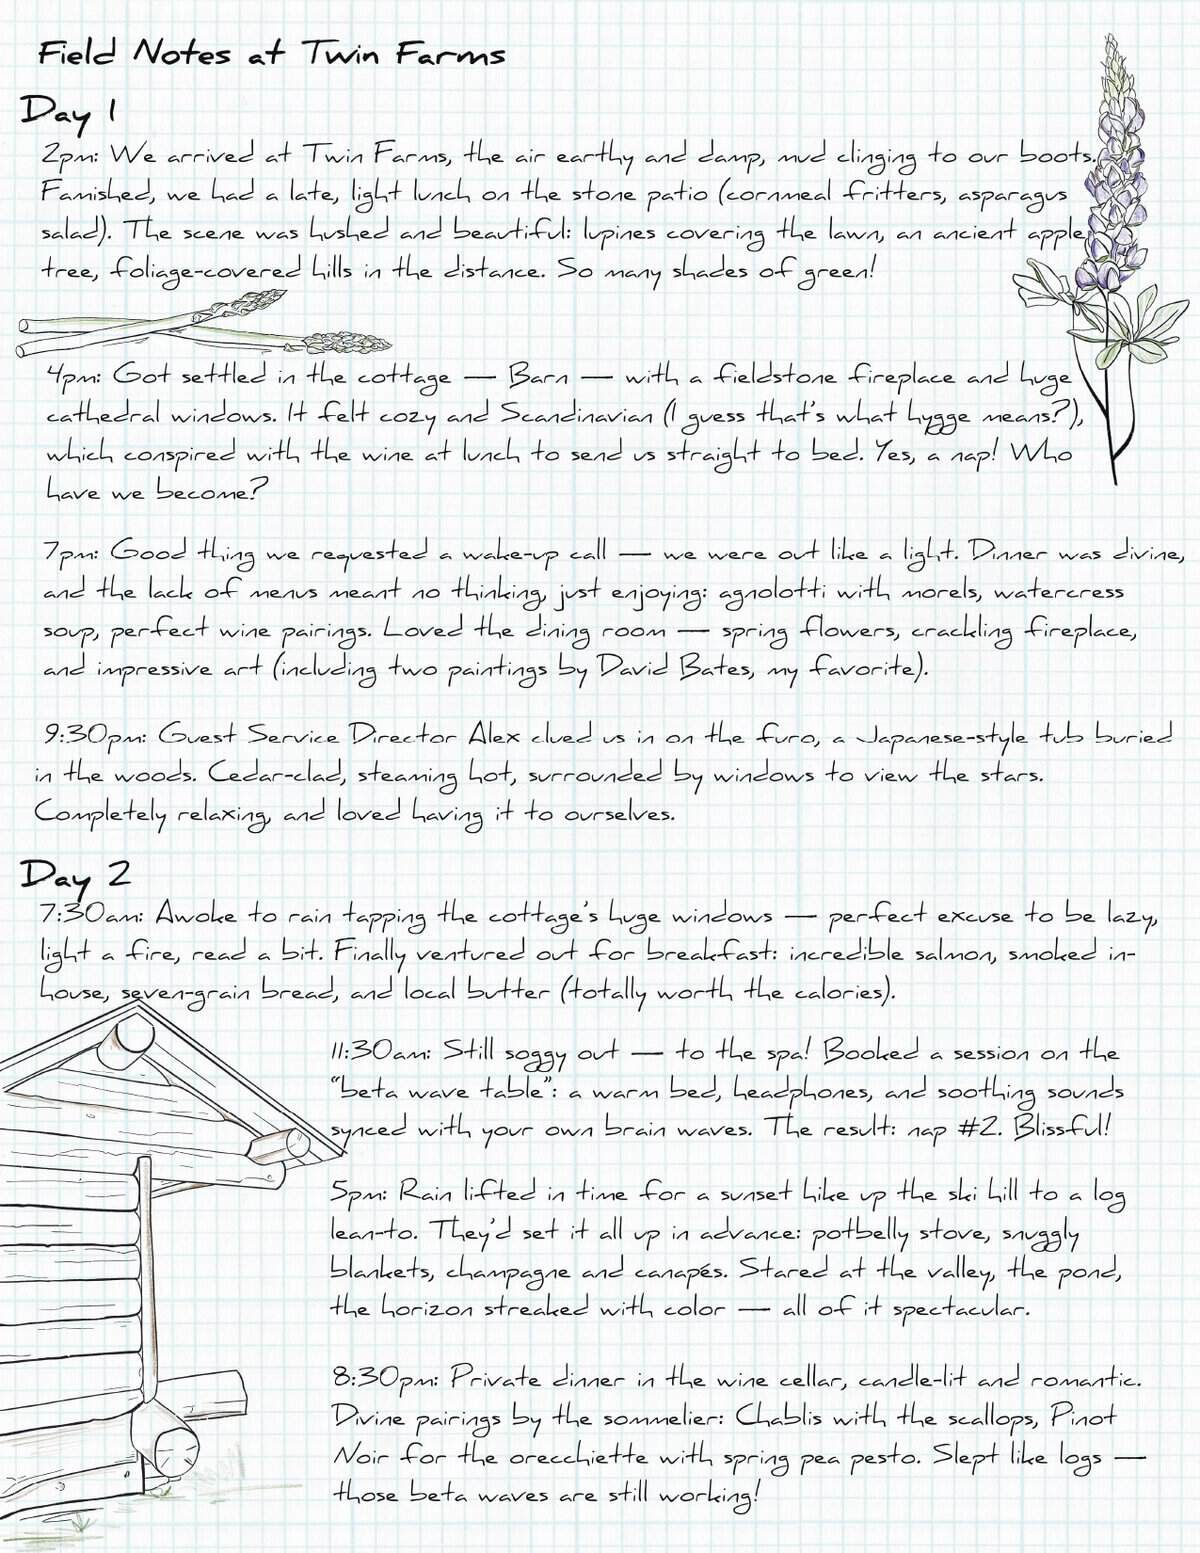 Field Notes at Twin Farms
Day 1
2pm: We arrived at Twin Farms, the air earthy and damp, mud clinging to our boots.
Famished, we had a late, light lunch on the stone patio (cornmeal fritters, asparagus
salad). The scene was hushed and beautiful: lupines covering the lawn, an ancient apple
tree, foliage-covered hills in the distance. So many shades of green!
4pm: Got settled in the cottage — Barn — with a fieldstone fireplace and huge
cathedral windows. It felt cozy and Scandinavian (I guess that's what hygge means?),
which conspired with the wine at lunch to send us straight to bed. Yes, a nap! Who
have we become?
7pm: Good thing we requested a wake-up call — we were out like a light. Dinner was divine,
and the lack of menus meant no thinking, just enjoying: agnolotti with morels, watercress
soup, perfect wine pairings. Loved the dining room — spring flowers, crackling fireplace,
and impressive art (including two paintings by David Bates, my favorite).
9:30pm: Guest Service Director Alex clued us in on the furo, a Japanese-style tub buried
in the woods. Cedar-clad, steaming hot, surrounded by windows to view the stars.
Completely relaxing, and loved having it to ourselves.
Day 2
7:30am: Awoke to rain tapping the cottage's huge windows — perfect excuse to be lazy,
light a fire, read a bit. Finally ventured out for breakfast: incredible salmon, smoked in-
house, seven-grain bread, and local butter (totally worth the calories).
11:30am: Still soggy out — to the spa! Booked a session on the
"beta wave table": a warm bed, headphones, and soothing sounds
synced with your own brain waves. The result: nap #2. Blissful!
5pm: Rain lifted in time for a sunset hike up the ski hill to a log
lean-to. They'd set it all up in advance: potbelly stove, snuggly
blankets, champagne and canapés. Stared at the valley, the pond,
the horizon streaked with color — all of it spectacular.
8:30pm: Private dinner in the wine cellar, candle-lit and romantic.
Divine pairings by the sommelier: Chablis with the scallops, Pinot
Noir for the orecchiette with spring pea pesto. Slept like logs —
those beta waves are still working!